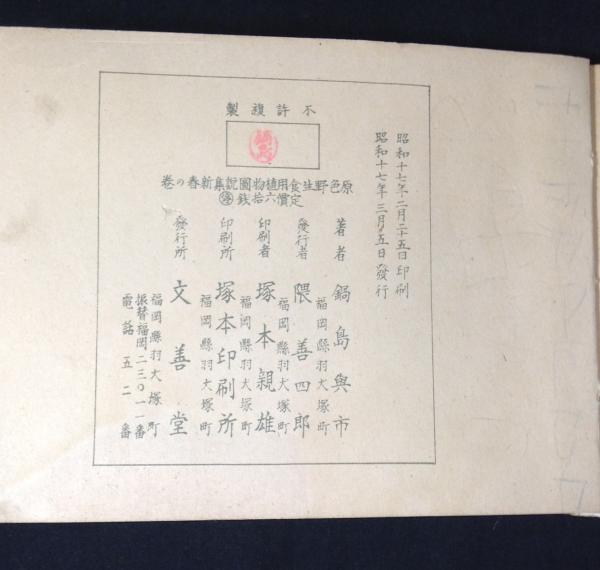 昭和十七年二月二十五日印刷
昭和十七年三月五日發行
不許複製
原色野生食用植物圖說集新春の卷
定價六拾錢
著者 鍋島與市
福岡縣羽犬塚町
發行者 隈善四郎
福岡縣羽犬塚町
印刷者 塚本親雄
福岡縣羽犬塚町
印刷所 塚本印刷所
福岡縣羽犬塚町
發行所 文善堂
福岡縣羽犬塚町
振替福岡二三〇一一番
電話五二番